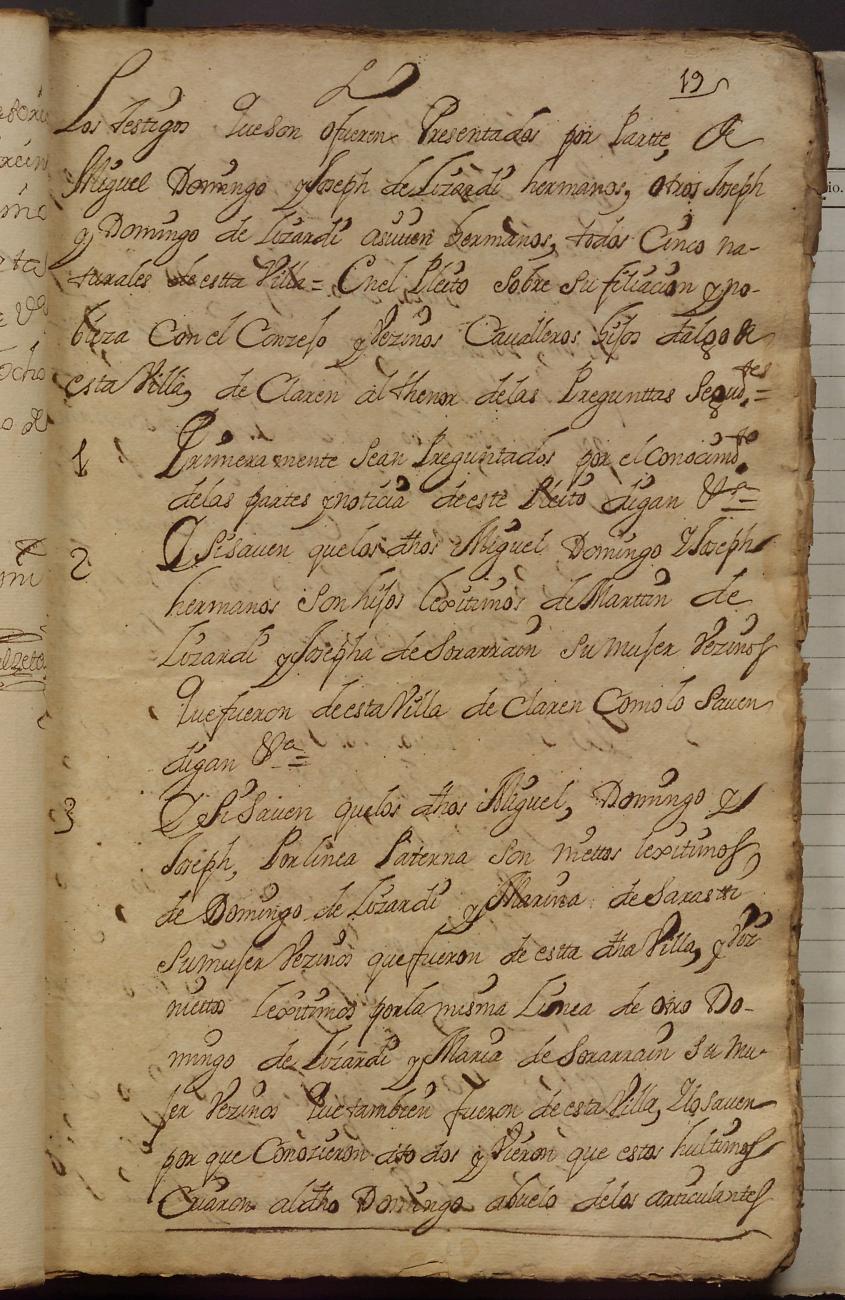 19
Los testigos que son o fueren Presentados por Partte, de
Miguel Domingo y Joseph de Lizardi hermanos, otros Joseph
y Domingo de Lizardi asuven hermanos, todos Cinco na-
turales de estta Villa = Enel Pleito sobre su filiacion y no-
bleza Con el Conzejo y Vezinos Cavalleros hijos dalgo de
esta Villa, de Claren al thenor delas Preguntas Seguites=
1 Primeramente Sean Preguntados por el conocimto
delas partes y noticia de este Pleito digan &a=
2 Y Si saven que los dhos Miguel Domingo Y Joseph
hermanos Son hijos lexitimos de Marttin de
Lizardi y Josepha de Sorarrain Su Muger Vezinos
que fueron de esta Villa de Claren Como lo Saven
digan &a=
3 Y Si Saven que los dhos Miguel, Domingo y
Joseph, Por linea Paterna Son niettos lexitimos
de Domingo de Lizardi y Marina de Sarasti
Su muger Vezinos que fueron de estta dha Villa, y Viz
niettos lexitimos por la misma Linea de otro Do-
mingo de Lizardi y Maria de Sorarrain Su mu-
ger Vezinos que tambien fueron de esta Villa, Y lo saven
por que Conozieron a todos y Vieron que estos hultimos
Criaron al dho Domingo abuelo delos articulantes